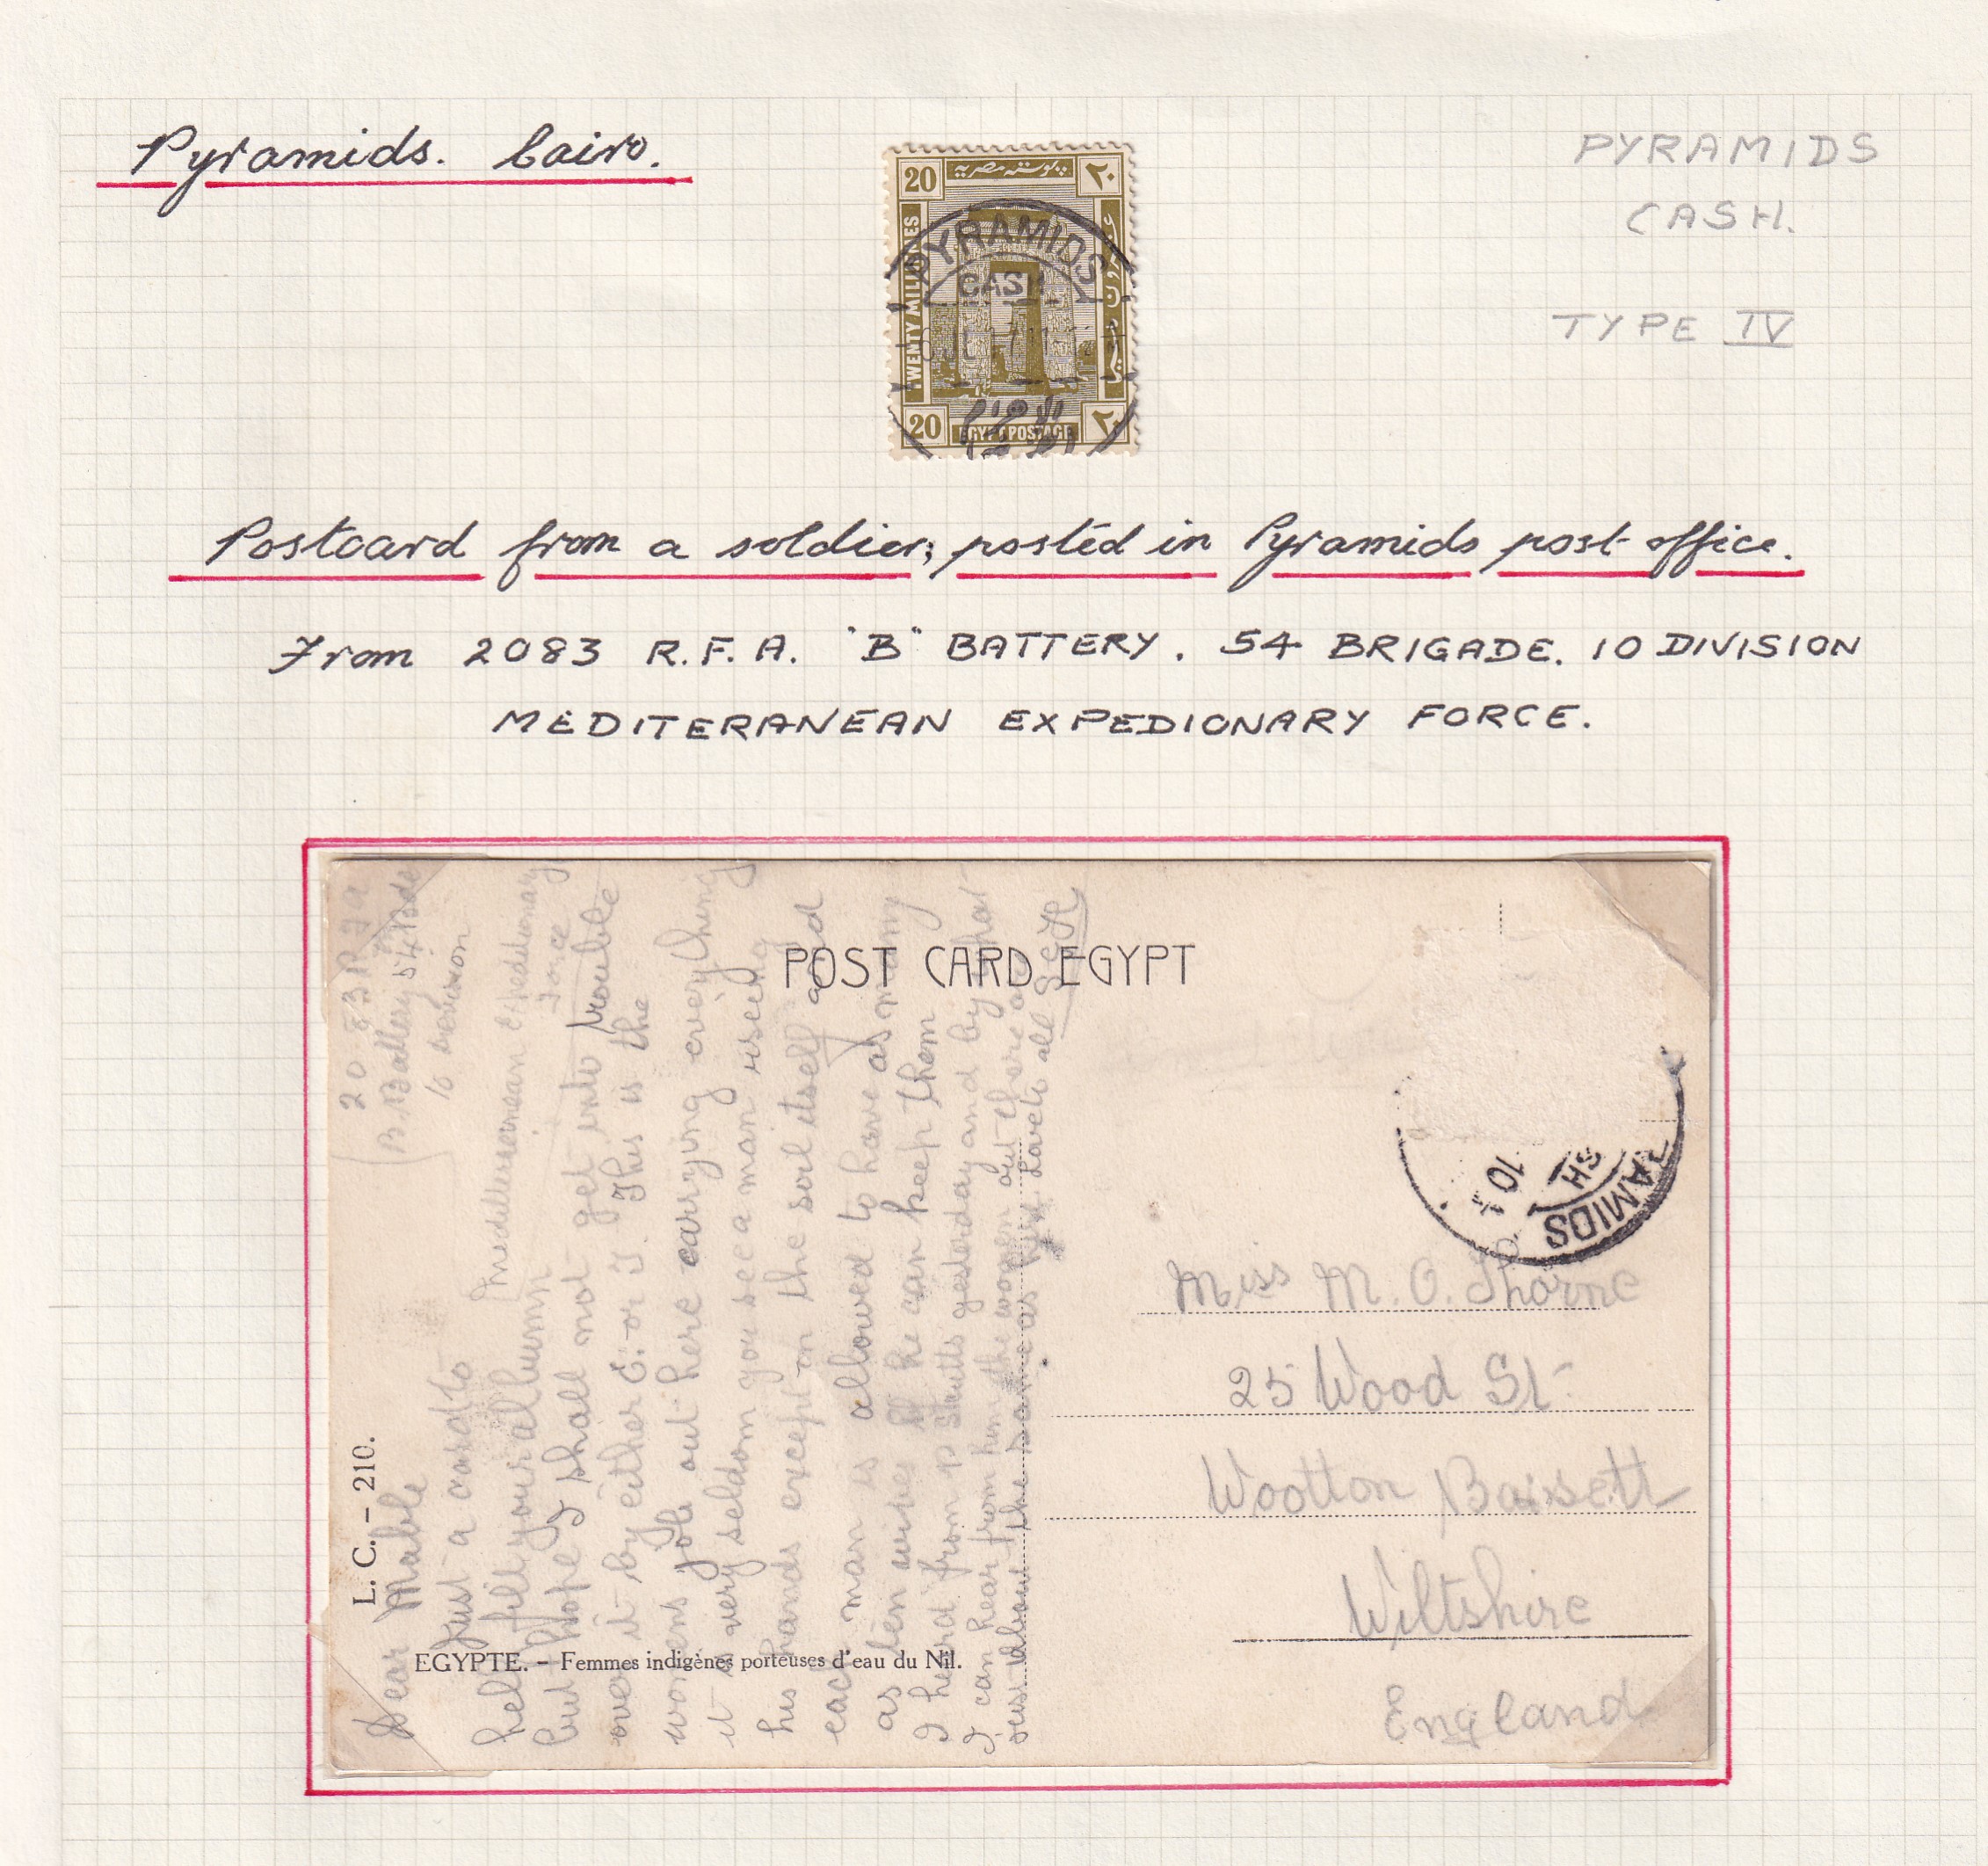 Pyramids. Cairo.
PYRAMIDS
CASH.
TYPE IV
20 پوستە مصريە ٢٠
TWENTY MILLIEMES
PYRAMIDS
CASH
الاهرام
20 EGYPT POSTAGE ٢٠
Postcard from a soldier; posted in Pyramids post office.
From 2083 R.F.A. "B" BATTERY. 54 BRIGADE. 10 DIVISION
MEDITERANEAN EXPEDIONARY FORCE.
POST CARD EGYPT
L. C. – 210.
EGYPTE. – Femmes indigènes porteuses d'eau du Nil.
2083 R F A
B. Battery 54 Bde
10 Devison
Mediterranean Expedionary
Force
Dear Mable
Just a card to
help fill your allbumn
but hope I shall not get into trouble
over it by either E. or I. This is the
womens job out here carrying everything
it is very seldom you see a man useing
his hands except on the soil itself and
each man is allowed to have as many
as ten wives if he can keep them
I herd from yesterday and by what
I can hear from him the women out there are
just about the same as love to all
AMIDS
SH
10
Miss M. O. Thorne
25 Wood St
Wootton Bassett
Wiltshire
England